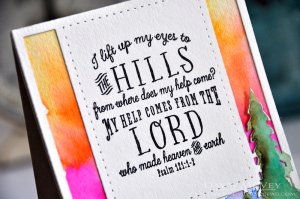 I lift up my eyes to
THE HILLS
from where does my help come?
MY HELP COMES FROM THE
LORD
who made heaven and earth
Psalm 121:1-2